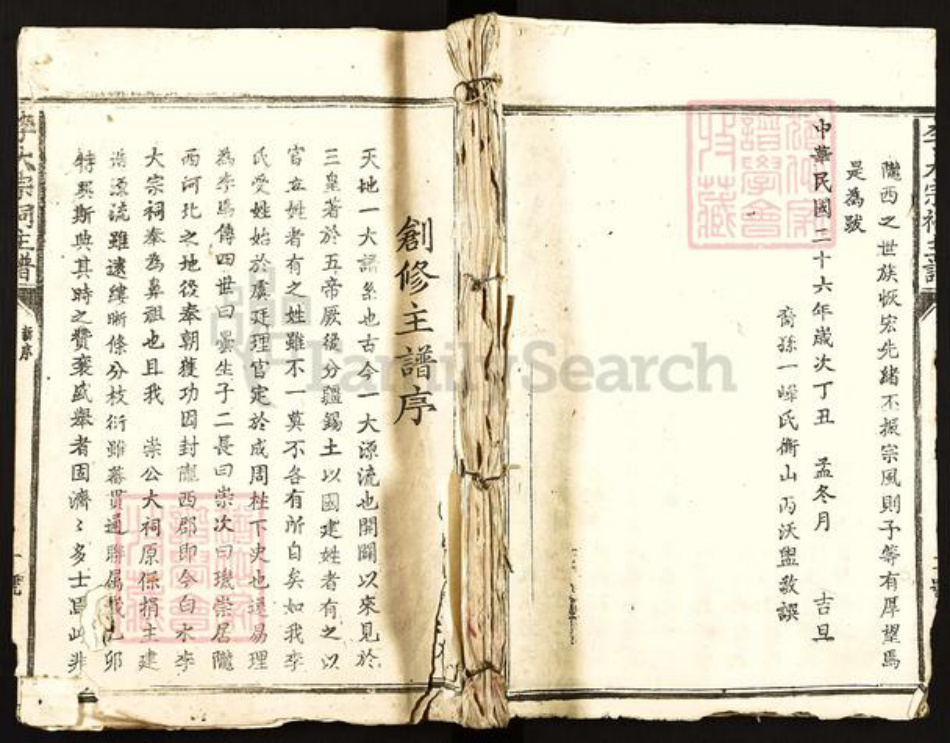 李大宗祠主譜
隴西之世族恢宏先緒丕振宗風則予等有厚望焉
是為號
中華民國二十六年歲次丁丑 孟冬月 吉旦
裔孫一嶧氏衡山丙沃盥敬譔
創修主譜序
天地一大譜系也古今一大源流也開闢以來見於
三皇著於五帝厥後分疆錫土以國建姓者有之以
官立姓者有之姓雖不一莫不各有所自矣如我李
氏受姓始於虞廷理官定於成周柱下史也遂易理
為李焉傳四世曰曇生子二長曰崇次曰璣崇居隴
西河北之地後奉朝獲功因封隴西郡即今白水李
大宗祠奉為鼻祖也且我 崇公大祠原係捐主建
源流雖遠縷晰條分枝衍雖蕃貫通聯屬 卯
特興斯典其時之贊襄盛舉者固濟〻多士 此非
李大宗祠主譜
新序
FamilySearch
譜學會
收藏